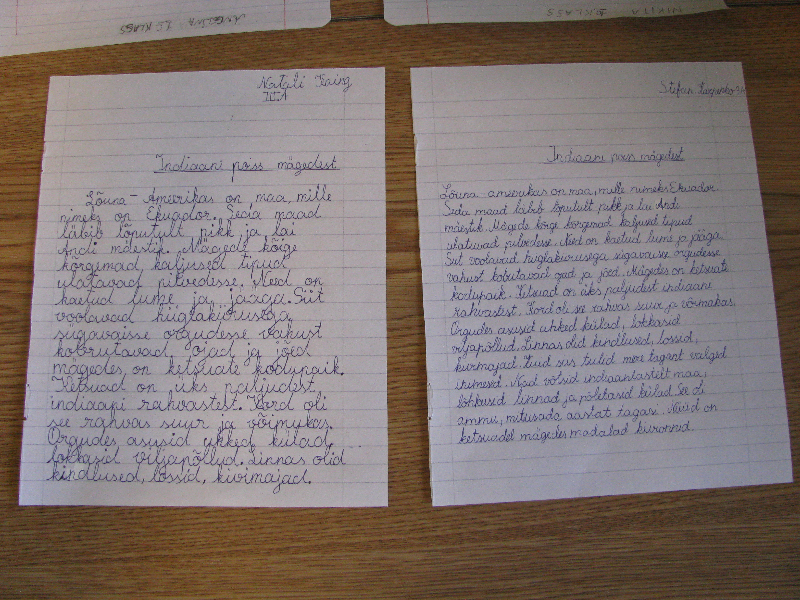 Natali
III A
Indiaani poiss mägedest
Lõuna-Ameerikas on maa, mille
nimeks on Ekuador. Seda maad
läbib lõputult pikk ja lai
Andi mäestik. Mägede kõige
kõrgemad kaljused tipud
ulatuvad pilvedesse. Need on
kaetud lume ja jääga. Siit
voolavad hiiglakiirusega
sügavaisse orgudesse vahust
kobrutavad ojad ja jõed.
mägedes on ketsuate kodupaik.
Ketsuad on üks paljudest
indiaani rahvastest. Kord oli
see rahvas suur ja võimukas.
Orgudes asusid uhked külad,
lokkasid viljapõllud. Linnas olid
kindlused, lossid, kivimajad.
Stefan
Indiaani poiss mägedest
Lõuna ameerikas on maa, mille nimeks Ekuador.
Seda maad läbib lõputult pikk ja lai Andi
mäistik. Mägede kõige kõrgemad kaljused tipud
ulatuvad pilvedesse. Need on kaetud lume ja jääga.
Siit voolavad hiiglakiirusega sügavaisse orgudesse
vahust kobrutavad ojad ja jõed. Mägedes on ketsuate
kodupaik. Ketsuad on üks paljudest indiaani
rahvastest. Kord oli see rahvas suur ja võimukas.
Orgudes asusid uhked külad, lokkasid
viljapõllud. Linnas olid kindlused, lossid,
kivimajad. Kuid siis tulid mere tagant valged
inimesed. Nad võtsid indiaanlastelt maa,
lõhkusid linnad ja põletasid külad. See oli
ammu, mitusada aastat tagasi. Nüüd on
ketsuadel mägedes madalad